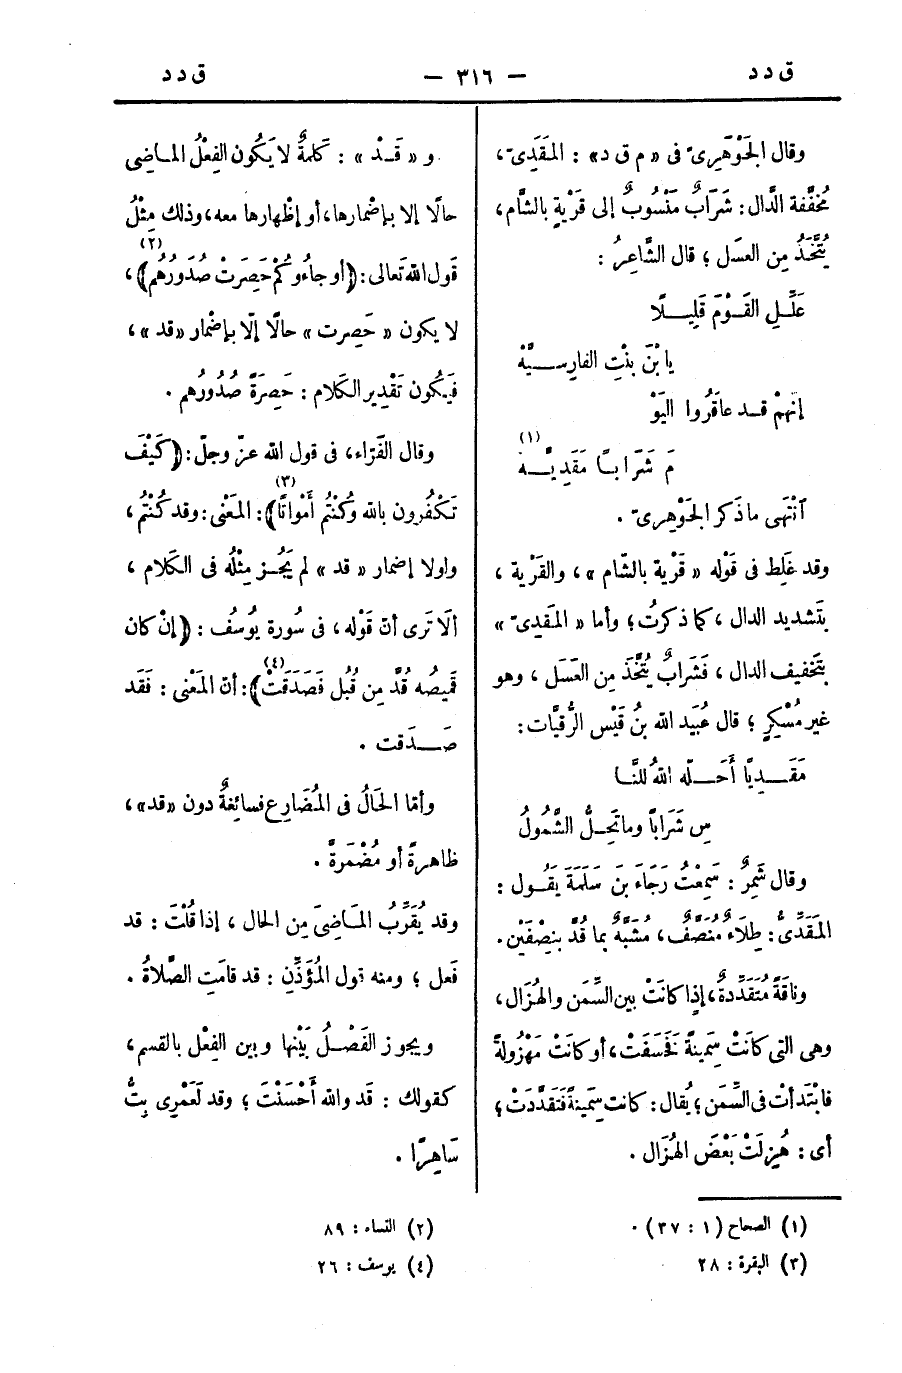 ق د د — ٣١٦ — ق د د
وقال الجَوْهَرِىّ فى « م ق د» : المَقَدِىّ،
مُخَفَّفة الدَّال : شَرَابٌ مَنْسُوبٌ إلى قَرْيةٍ بالشَّام،
يُتَّخَذُ مِن العسَل ؛ قال الشَّاعِرُ :
عَلِّـلِ القَـوْمَ قَلِيـلًا
يا بْنَ بنْتِ الفارِسـيَّهْ
إنهمْ قـد عاقَرُوا اليَوْ
مَ شَرَابـًا مَقَدِيَّـهْ (١)
آنْتَهى ما ذكر الجَوْهرِىّ .
وقد غَلِط فى قَوْله « قَرْية بالشَّام »، والقَرْية ،
بتَشديد الدال ، كما ذكرتُ ؛ وأما « المَقَدِىّ »
بتَخفيف الدال ، فَشَرابٌ يُتَّخَذ مِن العَسَل ، وهو
غير مُسْكِرٍ ؛ قال عُبَيد الله بنُ قَيْس الرُّقيَّات :
مَقَـدِيًّا أَحَـلَّه اللهُ للنَّـا
سِ شَرَاباً وما تَحِلُّ الشَّمُولُ
وقال شَمِرٌ : سَمِعْتُ رَجَاءَ بنَ سَلَمَةَ يَقُـول :
المَقَدِّىُّ : طِلَاءٌ مُنَصَّفٌ ، مُشَبَّهٌ بما قُدَّ بنِصْفَيْنِ .
وناقَةٌ مُتَقَدِّدةٌ، إذا كانَتْ بين السِّمَن والهُزَال،
وهى التى كانَتْ سَمِينةً فَخَسَفَتْ، أو كانَتْ مَهْزُولةً
فابْتَدأتْ فى السِّمَن ؛ يُقال : كانت سَمِينةً فتَقَدَّدَتْ ؛
أى : هُزِلَتْ بَعْضَ الهُزَال .
و « قَـدْ » : كَلِمةٌ لا يَكُون الفِعْلُ المـاضِى
حالًا إلا بإضْمارها، أو إظْهارها معه، وذلك مِثْلُ
قَول الله تَعالى : ﴿أو جاءُوكُمْ حَصِرَتْ صُدُورُهُم﴾(٢)،
لا يكون « حَصِرت » حالًا إلّا بإضْمار «قد »،
فيَكُون تَقْدِير الكَلام : حَصِرَةً صُدُورُهم .
وقال الفَرّاء، فى قول الله عزّ وجلّ : ﴿كَيْفَ
تَكْفُرون بالله وَكُنْتُم أَمْواتًا﴾(٣) : المَعْنى : وقد كُنْتُم،
ولولا إضمار « قد » لم يَجُـز مِثْلُه فى الكَلام ،
ألَا تَرى أنّ قَوْله ، فى سُورة يُوسُف : ﴿إنْ كان
قَمِيصُه قُدَّ مِن قُبُل فَصَدَقَتْ﴾(٤) : أنّ المَعْنى : فقَد
صَـدَقت .
وأمّا الحَالُ فى المُضَارِع فسائِغةٌ دون «قد»،
ظاهِرةً أو مُضْمَرةً .
وقد يُقَرِّبُ المَـاضِىَ مِن الحال ، إذا قُلْتَ : قد
فَعل ؛ ومنه قول المُؤَذِّنِ : قد قامَتِ الصَّلاةُ .
ويجوز الفَصْـلُ بَيْنها وبين الفِعْل بالقَسم،
كقولك : قَد والله أَحْسَنْتَ ؛ وقد لَعَمْرِى بِتُّ
سَاهِرًا .
(١) الصحاح (١ : ٣٧) .
(٢) النساء : ٨٩
(٣) البقرة : ٢٨
(٤) يوسف : ٢٦